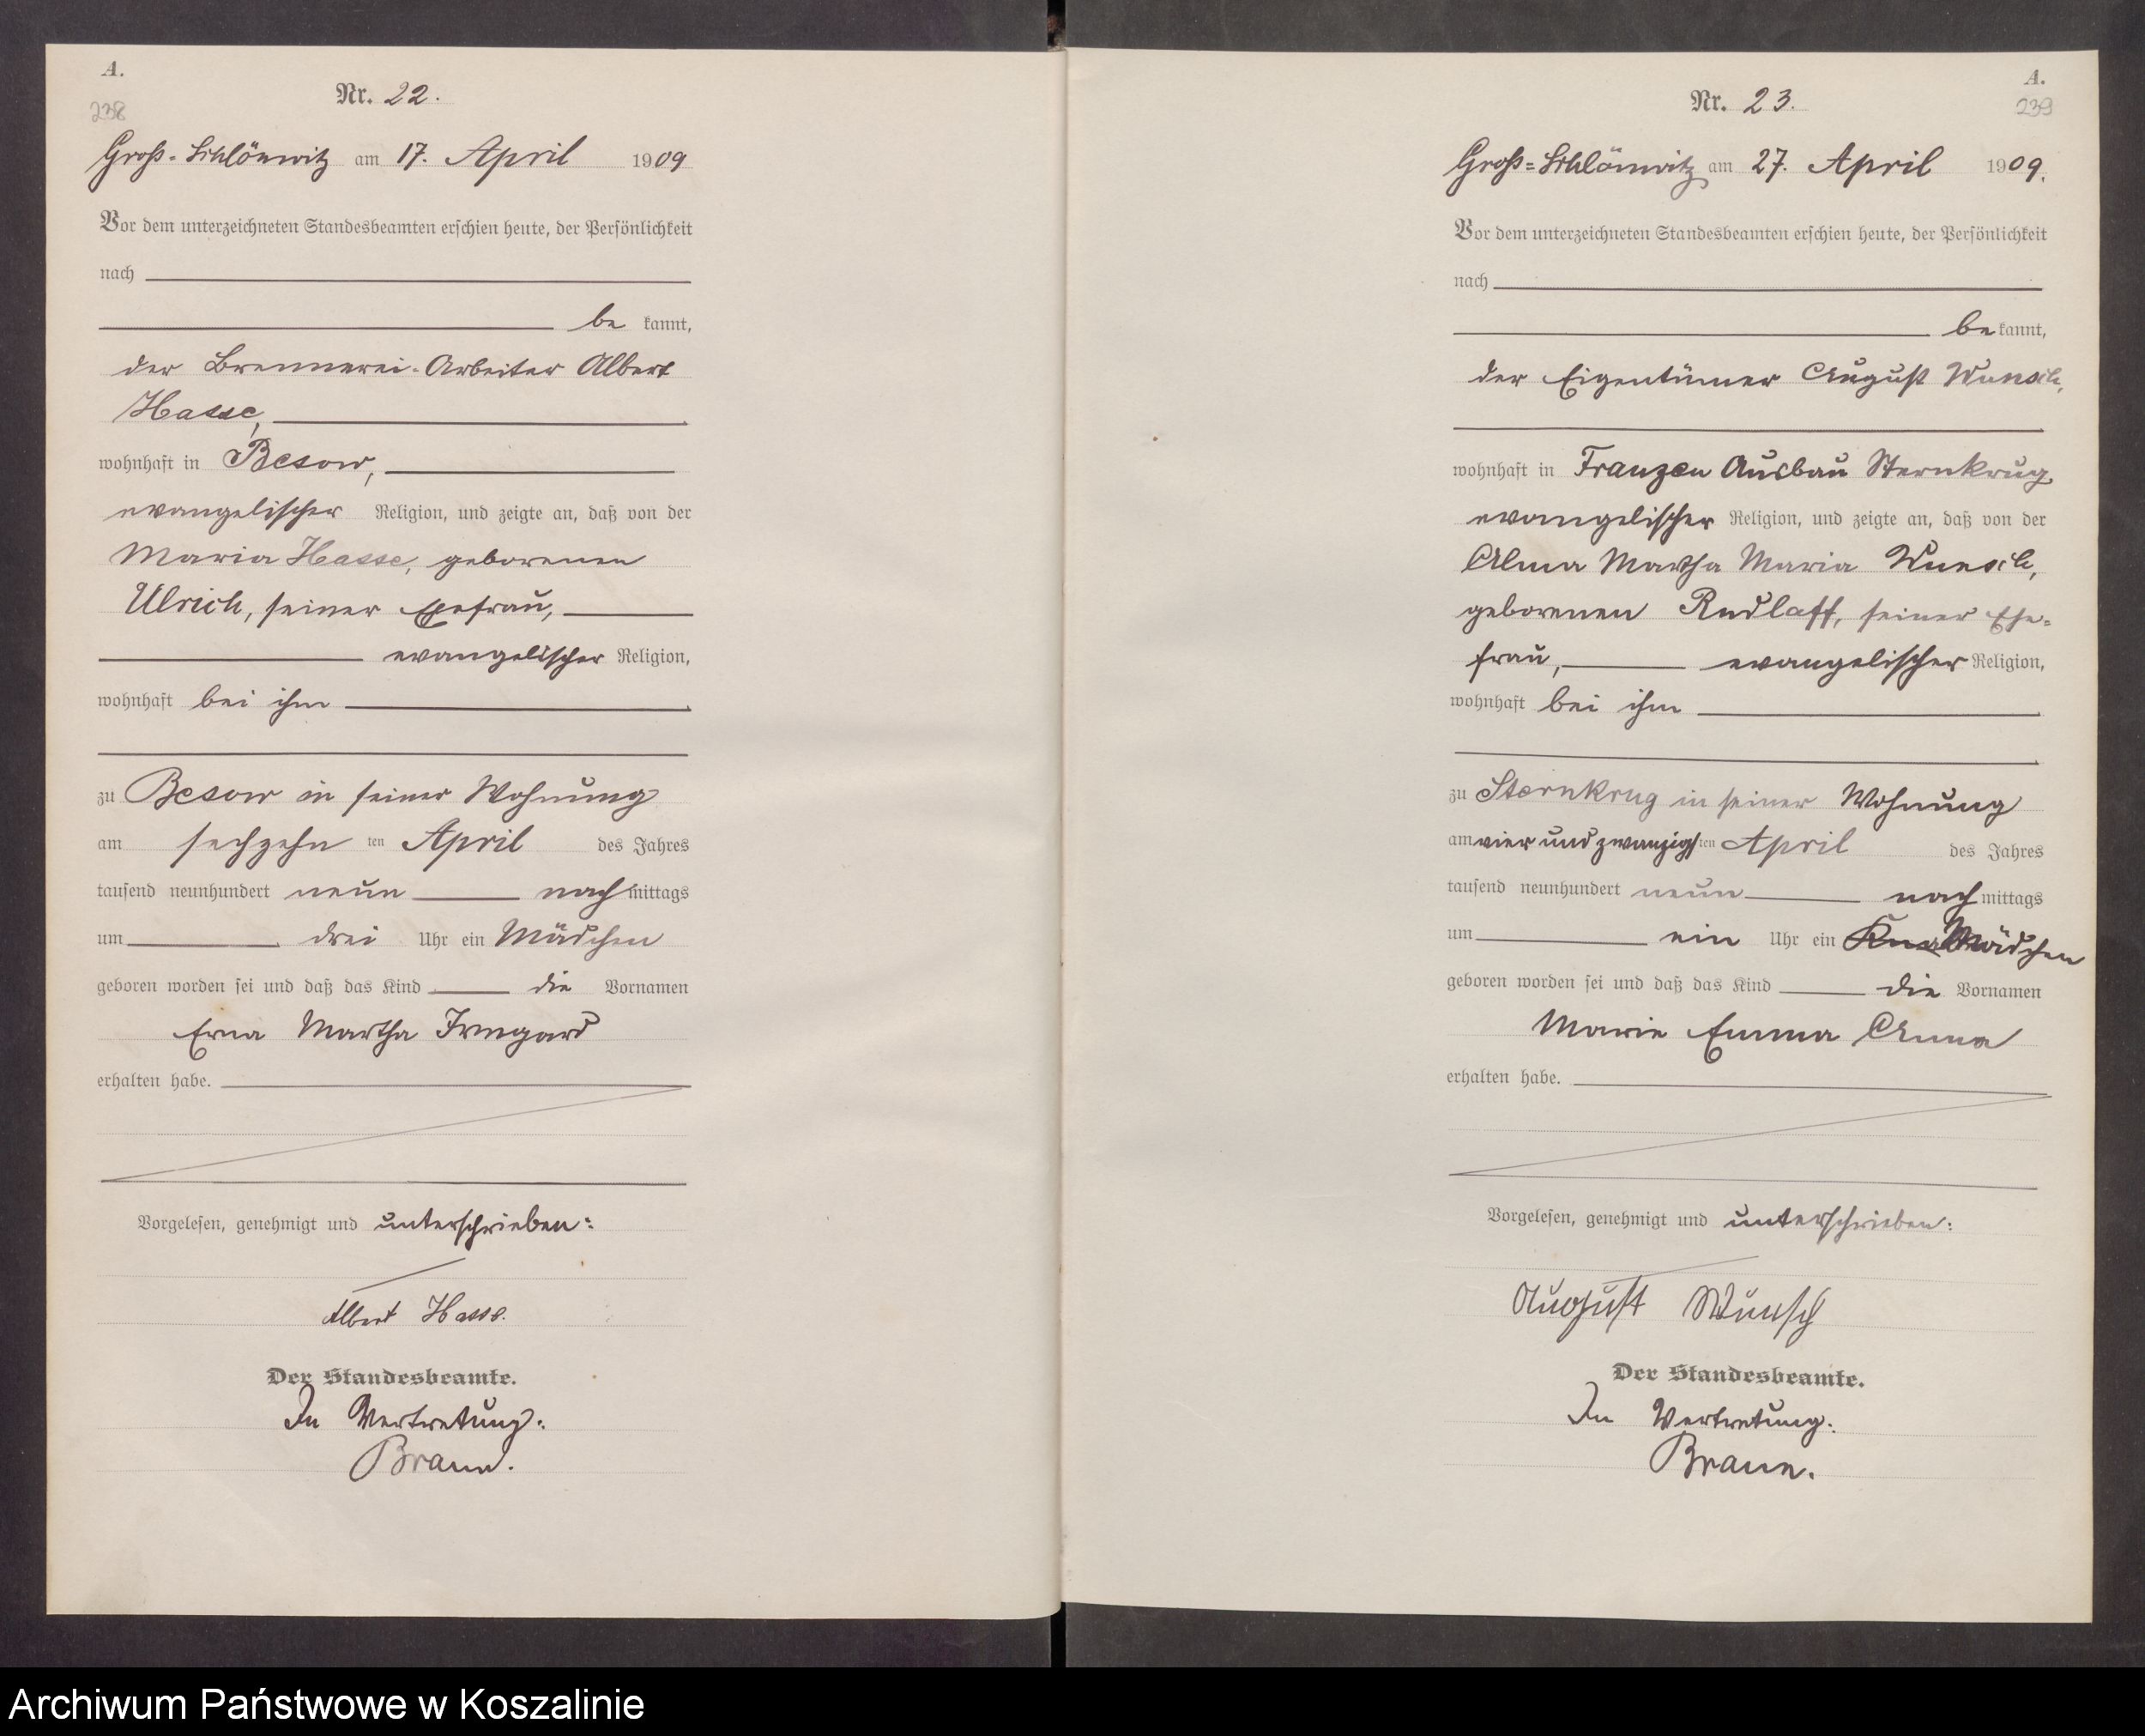 A.
238
Nr. 22.
Groß-Schlönwitz am 17. April 1909
Vor dem unterzeichneten Standesbeamten erschien heute, der Persönlichkeit
nach
be kannt,
der Brennerei-Arbeiter Albert
Hasse,
wohnhaft in Besow,
evangelischer Religion, und zeigte an, daß von der
Maria Hasse, geborenen
Ulrich, seiner Ehefrau,
evangelischer Religion,
wohnhaft bei ihm
zu Besow in seiner Wohnung
am sechzehn ten April des Jahres
tausend neunhundert neun nach mittags
um drei Uhr ein Mädchen
geboren worden sei und daß das Kind die Vornamen
Erna Martha Irmgard
erhalten habe.
Vorgelesen, genehmigt und unterschrieben:
Albert Hasse.
Der Standesbeamte.
In Vertretung:
Braun.
A.
239
Nr. 23.
Groß=Schlönwitz am 27. April 1909.
Vor dem unterzeichneten Standesbeamten erschien heute, der Persönlichkeit
nach
be kannt,
der Eigentümer August Wunsch,
wohnhaft in Franzen Ausbau Sternkrug
evangelischer Religion, und zeigte an, daß von der
Alma Martha Maria Wunsch,
geborenen Rudlaff, seiner Ehe=
frau, evangelischer Religion,
wohnhaft bei ihm
zu Sternkrug in seiner Wohnung
am vier und zwanzigsten April des Jahres
tausend neunhundert neun nach mittags
um ein Uhr ein Mädchen
geboren worden sei und daß das Kind die Vornamen
Marie Emma Anna
erhalten habe.
Vorgelesen, genehmigt und unterschrieben:
August Wunsch
Der Standesbeamte.
In Vertretung:
Braun.
Archiwum Państwowe w Koszalinie